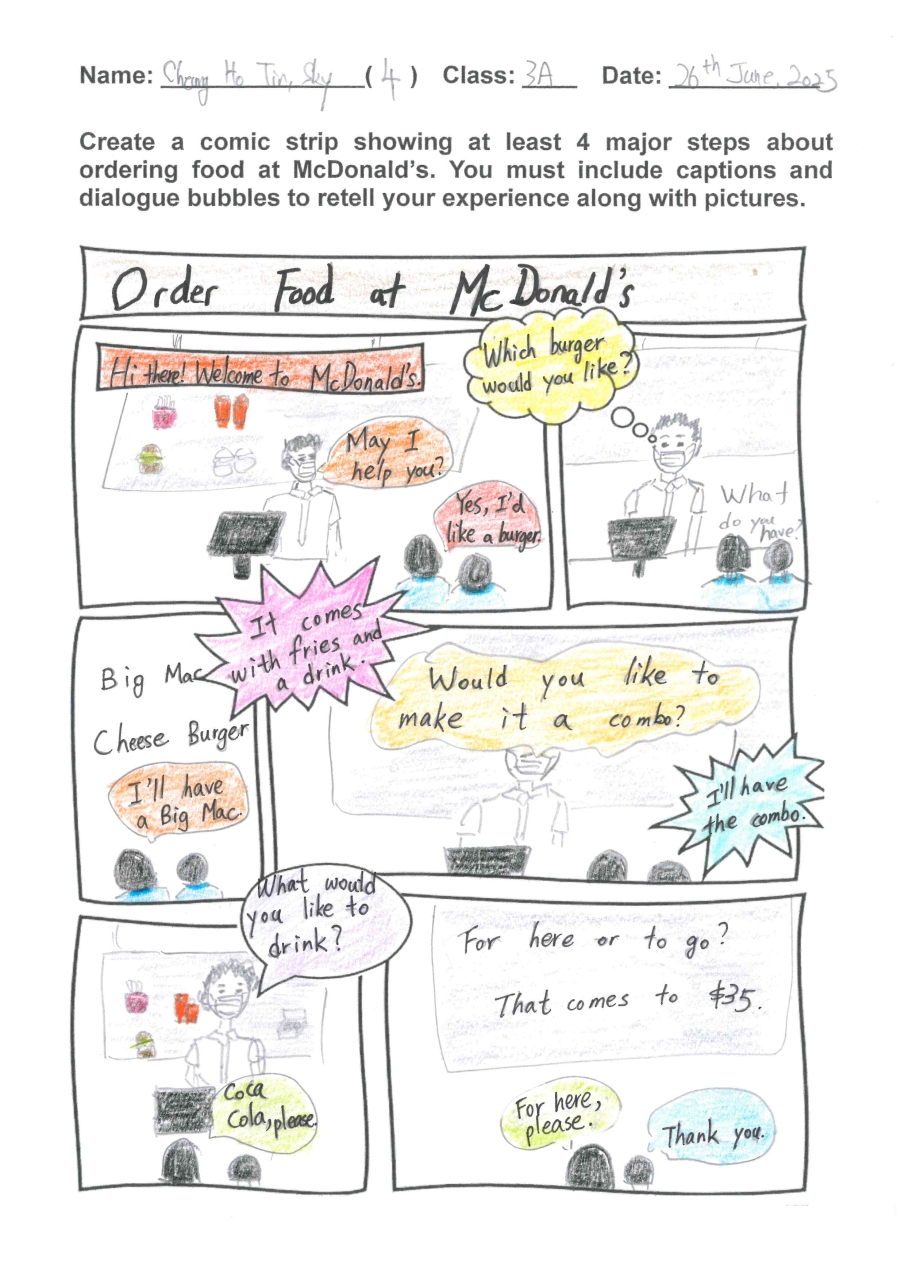 Name: Chong Ho Tin, Sky ( 4 ) Class: 3A Date: 26th June, 2025
Create a comic strip showing at least 4 major steps about
ordering food at McDonald's. You must include captions and
dialogue bubbles to retell your experience along with pictures.
Order Food at McDonald's
Hi there! Welcome to McDonald's.
May I
help you?
Yes, I'd
like a burger.
Which burger
would you like?
What
do you
have?
Big Mac
Cheese Burger
I'll have
a Big Mac.
It comes
with fries and
a drink.
Would you like to
make it a combo?
I'll have
the combo.
What would
you like to
drink?
Coca
Cola, please.
For here or to go?
That comes to $35.
For here,
please.
Thank you.